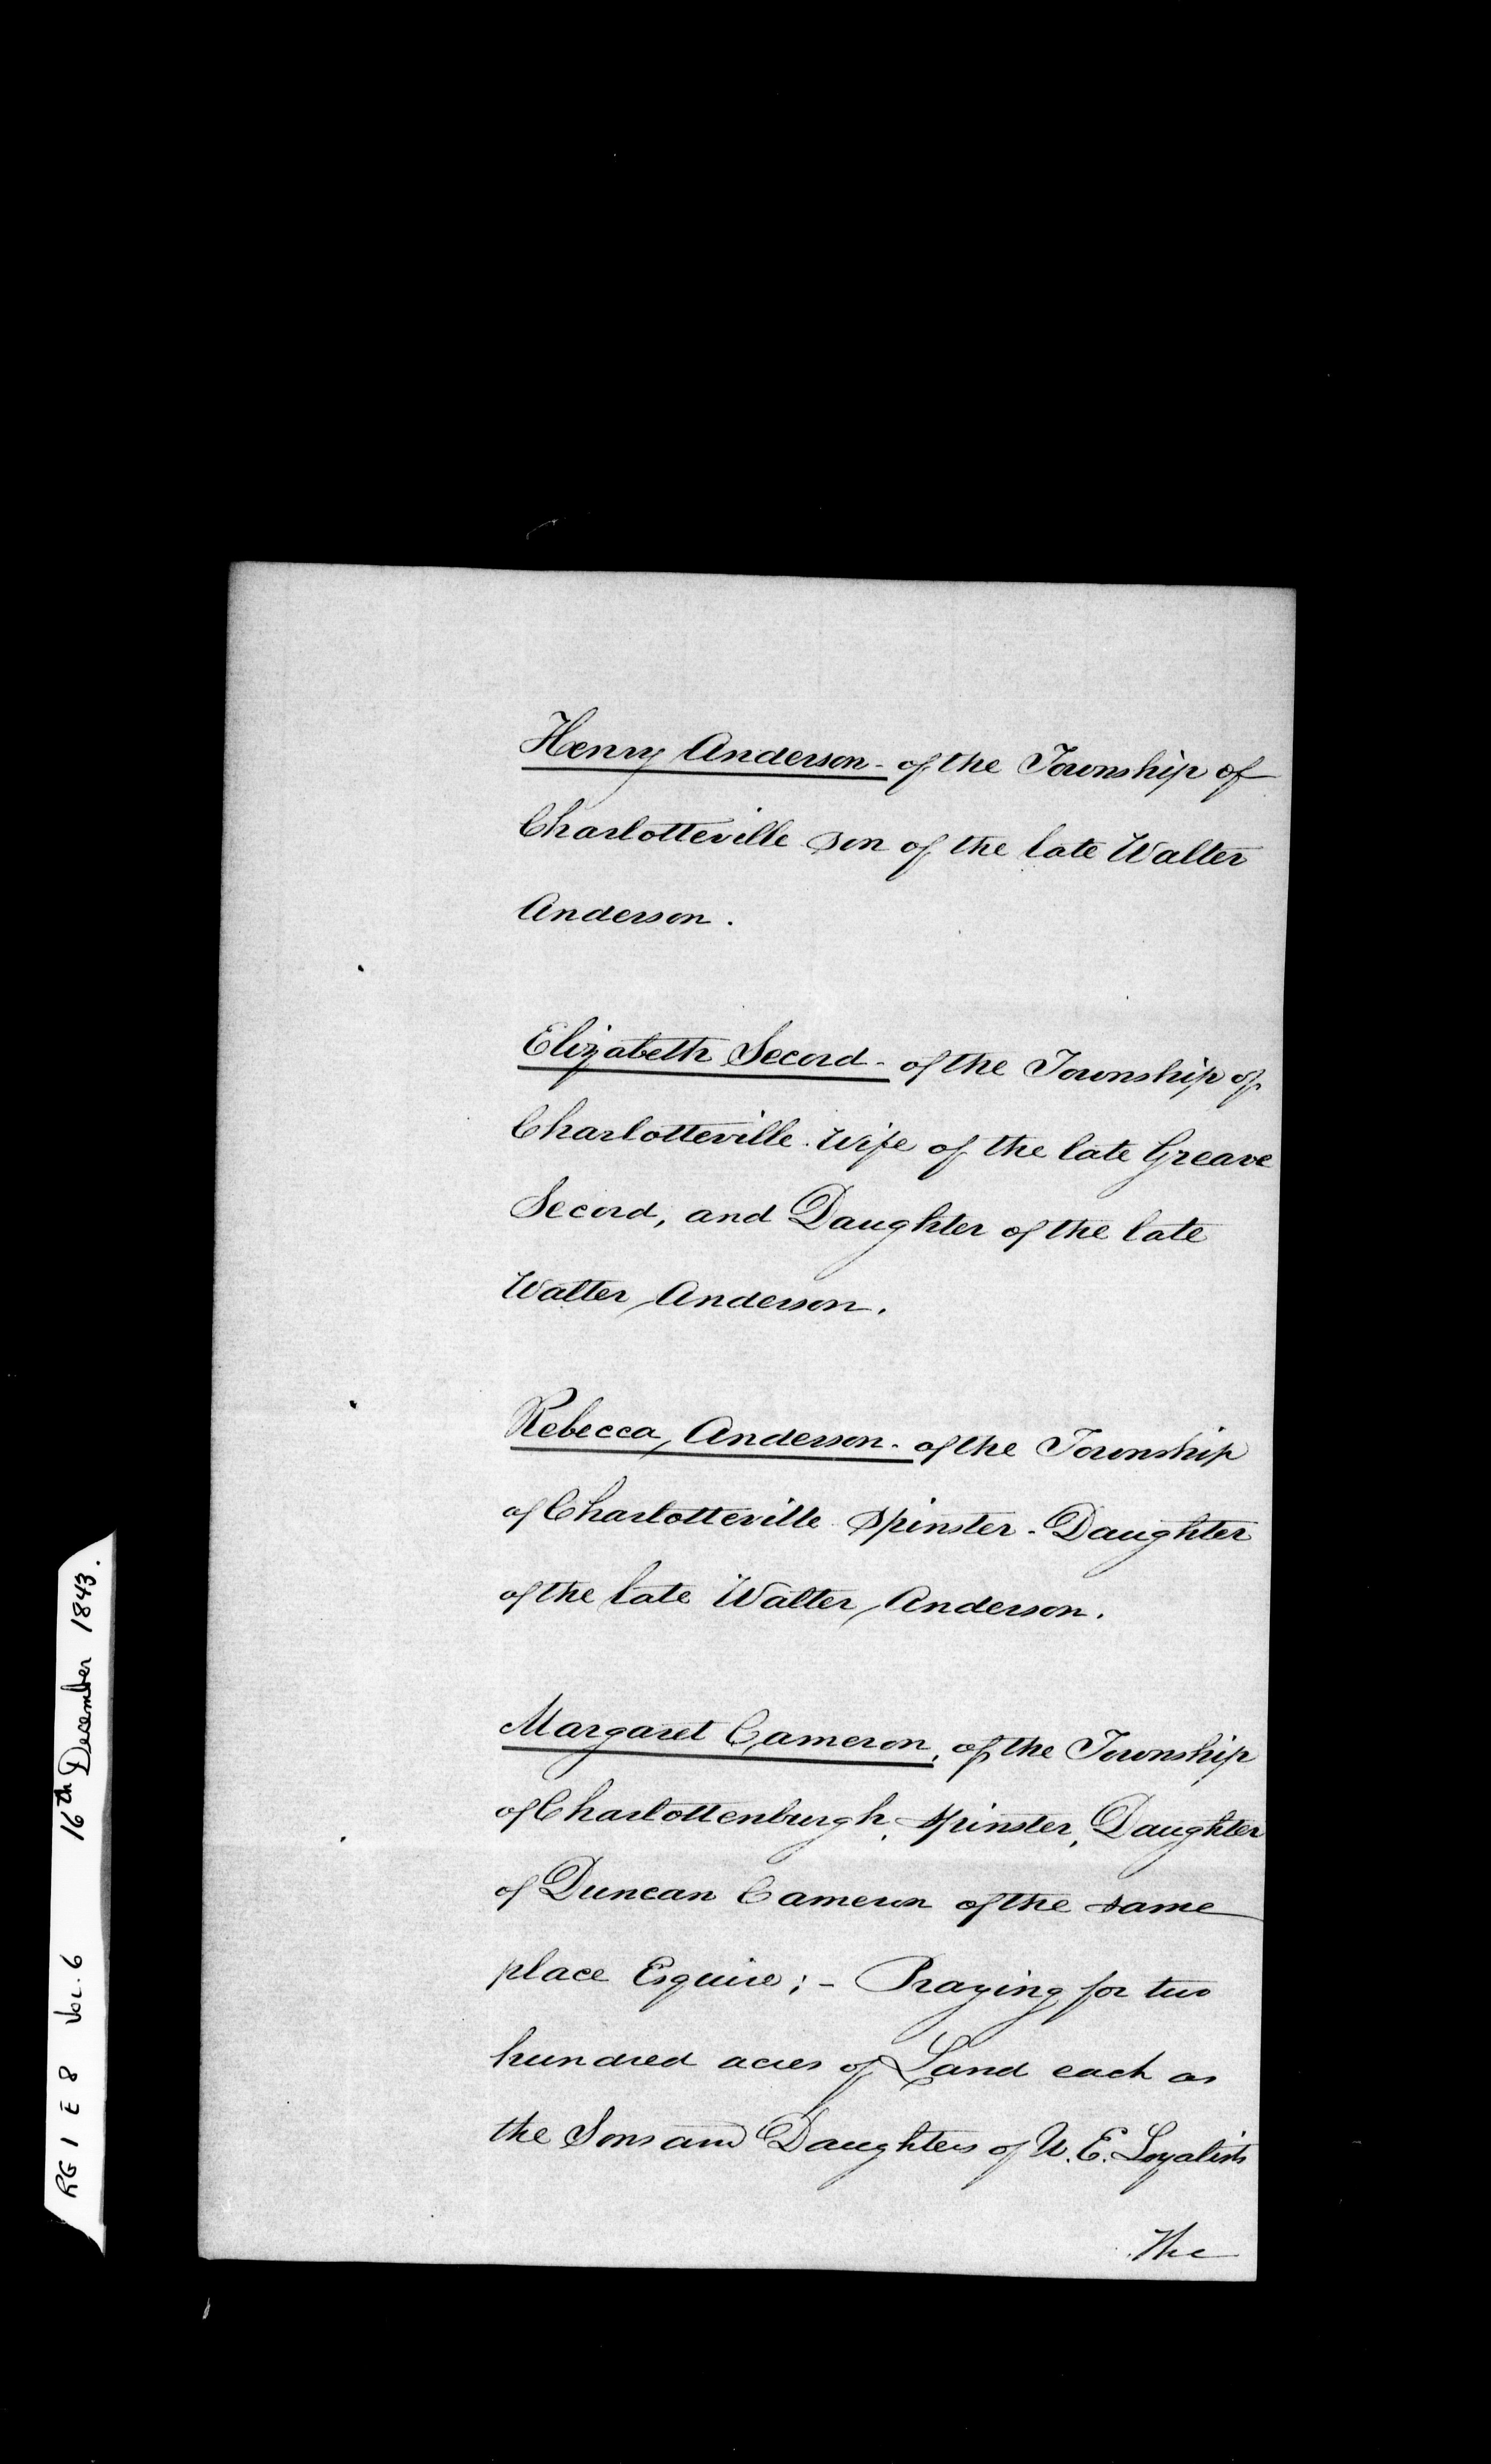 Henry Anderson - of the Township of
Charlotteville son of the late Walter
Anderson.
Elizabeth Secord - of the Township of
Charlotteville. Wife of the late Greave
Secord, and Daughter of the late
Walter Anderson.
Rebecca Anderson - of the Township
of Charlotteville Spinster - Daughter
of the late Walter Anderson.
Margaret Cameron, of the Township
of Charlottenburgh, Spinster, Daughter
of Duncan Cameron of the same
place Esquire; - Praying for two
hundred acres of Land each as
the Sons and Daughters of U. E. Loyalists
The
RG 1 E 8 Vol. 6 16th December 1843.